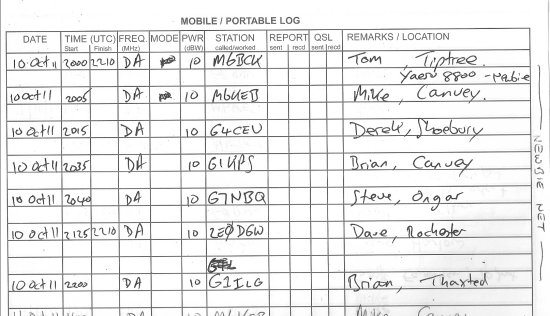 MOBILE / PORTABLE LOG
DATE TIME (UTC) FREQ. MODE PWR STATION REPORT QSL REMARKS / LOCATION
Start Finish (MHz) (dBW) called/worked sent recd sent recd
10 Oct 11 2000 2210 DA 10 M6BCK Tom, Tiptree
Yaesu 8800 -
10 Oct 11 2005 DA 10 M6KEB Mike, Canvey.
10 Oct 11 2015 DA 10 G4CEU Derek, Shoebury
10 Oct 11 2035 DA 10 G1KPS Brian, Canvey
10 Oct 11 2040 DA 10 G7NBQ Steve, Ongar
10 Oct 11 2125 2210 DA 10 2E0DGW Dave, Rochester
10 Oct 11 2200 DA 10 G1ILG Brian, Thaxted
Mike Canvey
NEWBIE NET